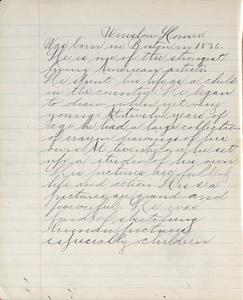 Winslow Homer
Was born in Boston in 1836.
He is one of the strongest
living American artists.
He spent his life as a child
in the country. He began
to draw when yet very
young. At twelve years of
age he had a large collection
of crayon drawings of his
own. At twenty one he set
up a studio of his own.
His pictures are full of
life and action. His sea
pictures are grand and
powerful. He was
fond of sketching
human pictures
especially children